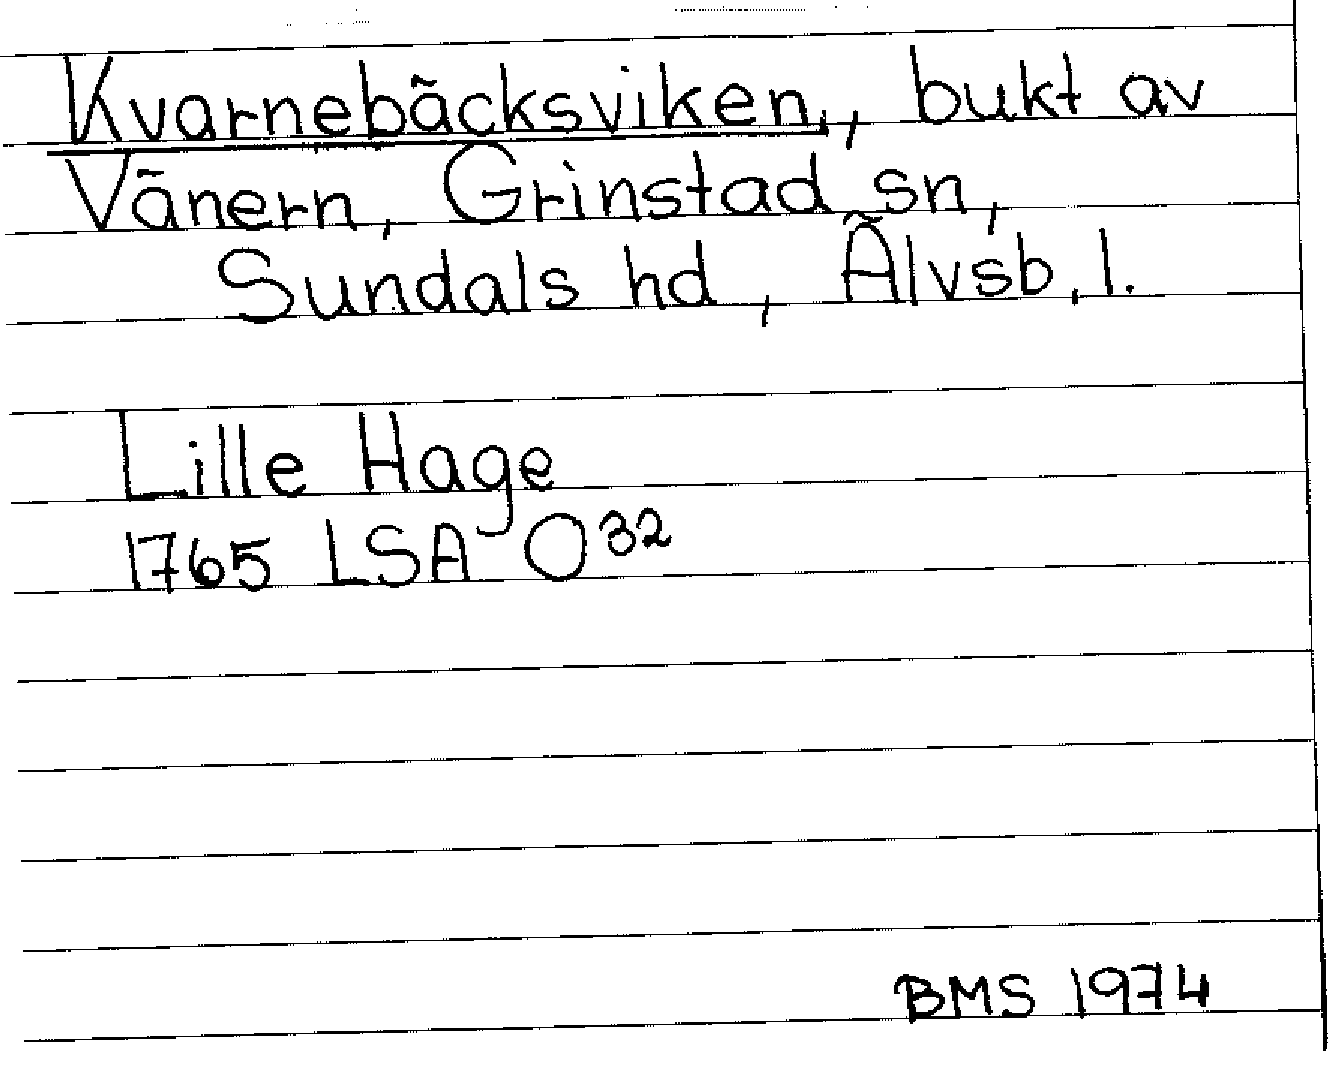 Kvarnebäcksviken, bukt av
Vänern, Grinstad sn,
Sundals hd, Älvsb. l.
Lille Hage
1765 LSA O32
BMS 1974